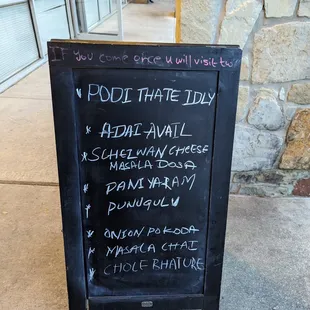 If you come once u will visit tw
* PODI THATE IDLY
* ADAI-AVAIL
* SCHEZWAN CHEESE
MASALA DOSA
* PANIYARAM
* PUNUGULU
* ONION POKODA
* MASALA CHAI
* CHOLE BHATURE